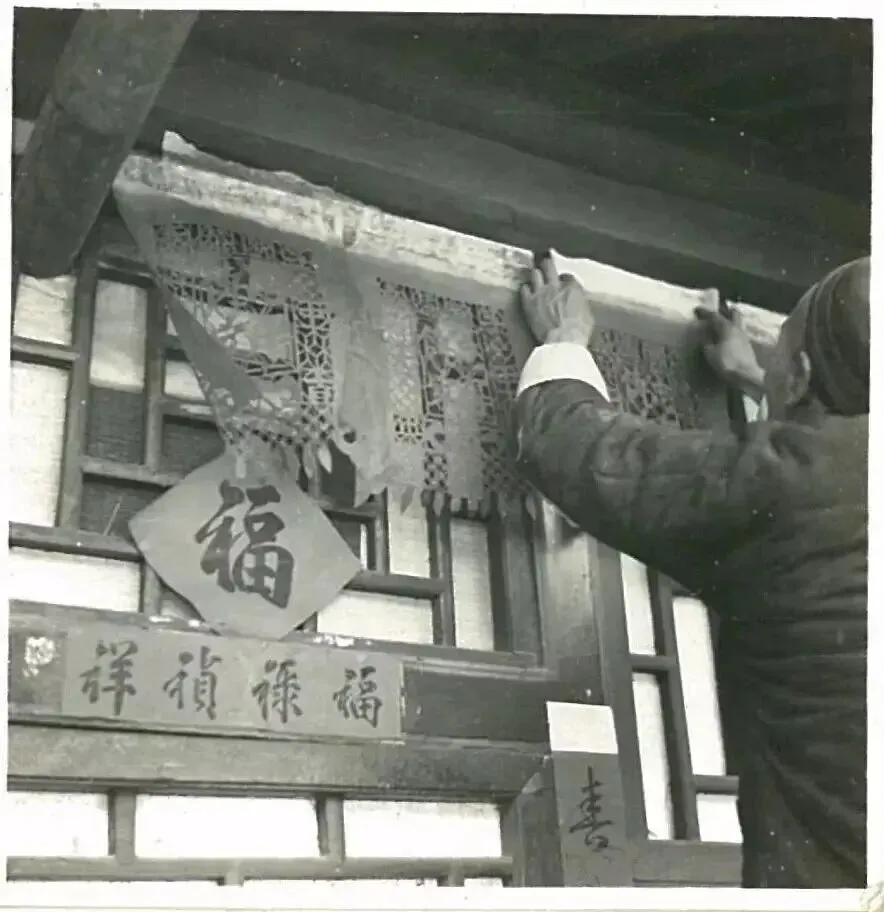 福
福祿禎祥
喜